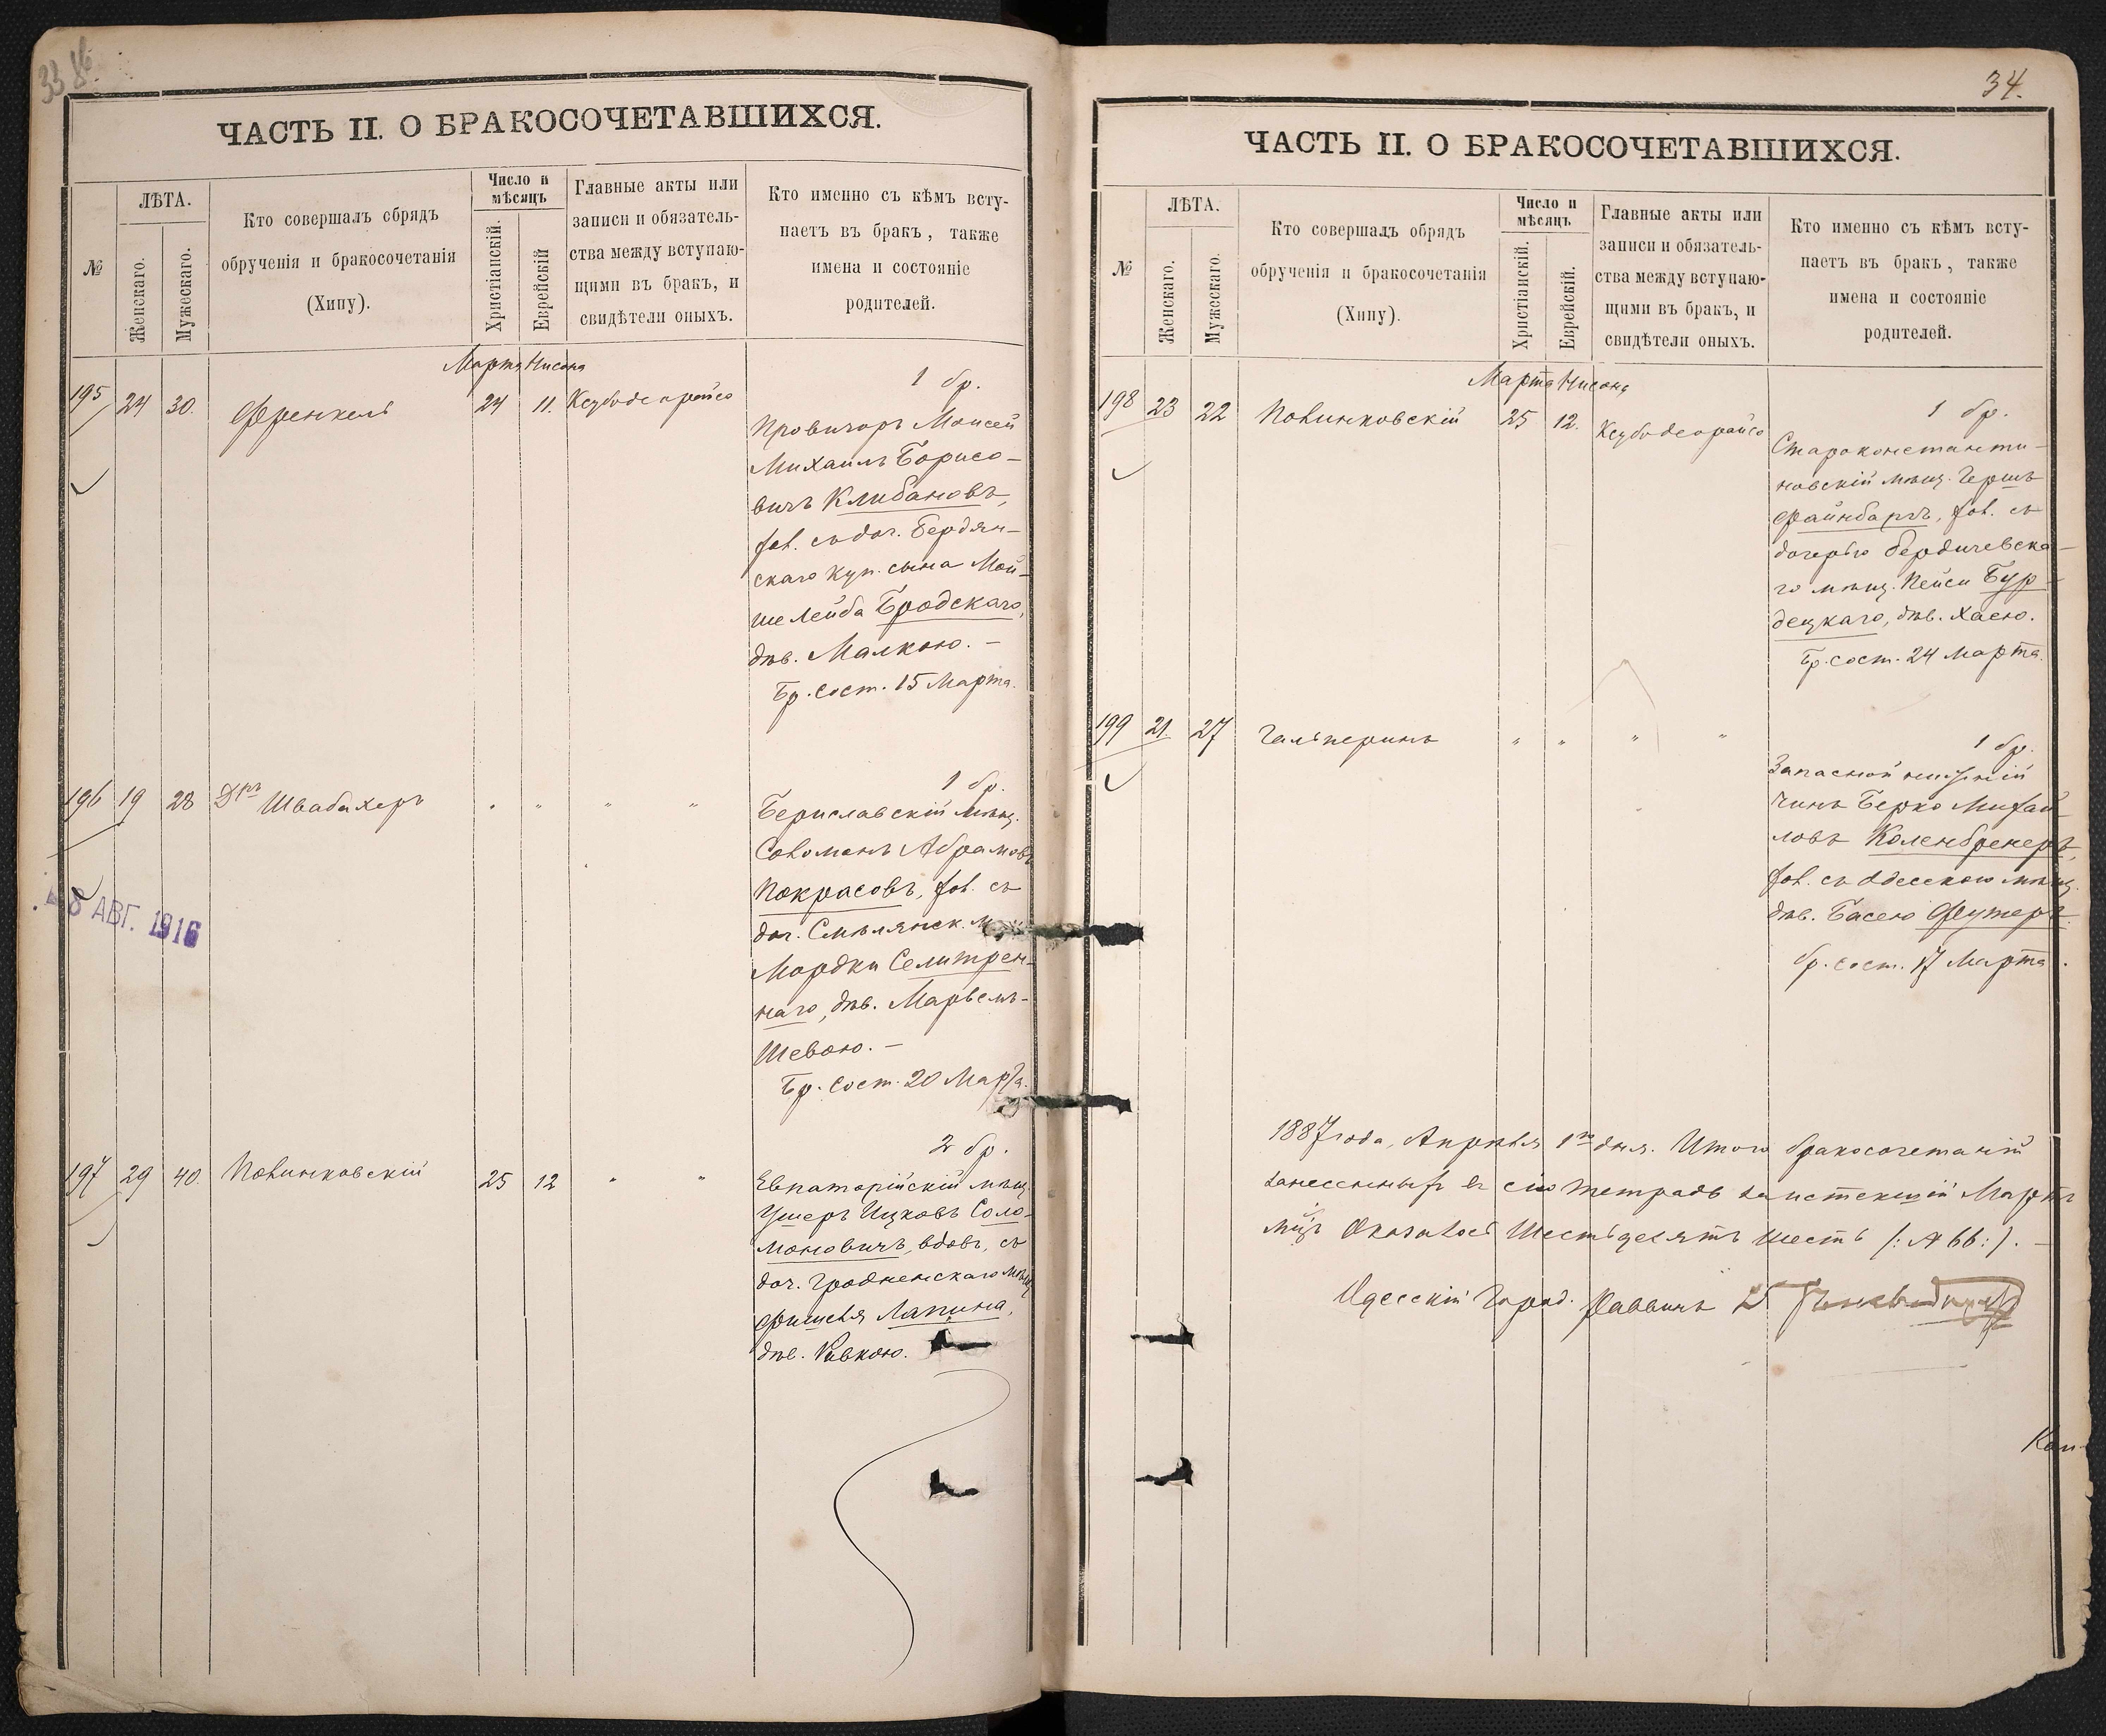 33 об.
ЧАСТЬ II. О БРАКОСОЧЕТАВШИХСЯ.
№
ЛѢТА.
Женскаго.
Мужескаго.
Кто совершалъ обрядъ
обрученія и бракосочетанія
(Хипу).
Число и
мѣсяцъ
Христіанскій.
Еврейскій
Главные акты или
записи и обязатель-
ства между вступаю-
щими въ бракъ, и
свидѣтели оныхъ.
Кто именно съ кѣмъ всту-
паетъ въ бракъ, также
имена и состояніе
родителей.
Марта Нисона
195 24 30. Френкель 24 11. Ксубо деорайсо
1 бр.
Провизоръ Моисей
Михаилъ Борисо-
вичъ Клибановъ,
хол. съ доч. Бердян-
скаго куп. сына Мой-
ше Лейба Бродскаго,
дѣв. Малкою. –
Бр. сост. 15 Марта.
196 19 28 Дръ Швабахеръ " " " "
1 бр.
Бериславскій мѣщ.
Соломонъ Абрамовъ
Покрасовъ, хол. съ
доч. Смѣлянск.
Мордки Селитрен-
наго, дѣв. Марьемъ-
Шевою. –
Бр. сост. 20 Марта.
8 АВГ. 1916
197 29 40. Полинковскій 25 12 " "
2 бр.
Евпаторійскій мѣщ.
Ушеръ Ицковъ Соло-
моновичъ, вдовъ, съ
доч. Гродненскаго мѣщ
Фишеля Лапина,
дѣв. Ривкою.
34.
ЧАСТЬ II. О БРАКОСОЧЕТАВШИХСЯ.
№
ЛѢТА.
Женскаго.
Мужескаго.
Кто совершалъ обрядъ
обрученія и бракосочетанія
(Хипу).
Число и
мѣсяцъ
Христіанскій.
Еврейскій.
Главные акты или
записи и обязатель-
ства между вступаю-
щими въ бракъ, и
свидѣтели оныхъ.
Кто именно съ кѣмъ всту-
паетъ въ бракъ, также
имена и состояніе
родителей.
Марта Нисона
198 23 22 Полинковскій 25 12. Ксубо деорайсо
1 бр.
Староконстанти-
новскій мѣщ. Гершъ
Файнбаръ, хол. съ
дочерью Бердичевска-
го мѣщ. Пейси Бур-
децкаго, дѣв. Хаею.
Бр. сост. 24 Марта.
199 21. 27 Гальперинъ " " " "
1 бр.
Запасной нижній
чинъ Берко Михай-
ловъ Коленбренеръ,
хол. съ Одесскою мѣщ.
дѣв. Басею Футеръ.
бр. сост. 17 Марта.
1887 года, Апрѣля 1го дня. Итого бракосочетаній
занесенныхъ въ сію тетрадь за истекшій Мартъ
мцъ оказалось Шестьдесятъ шесть (:№ 66:). –
Одесскій Город. Раввинъ
Кан-